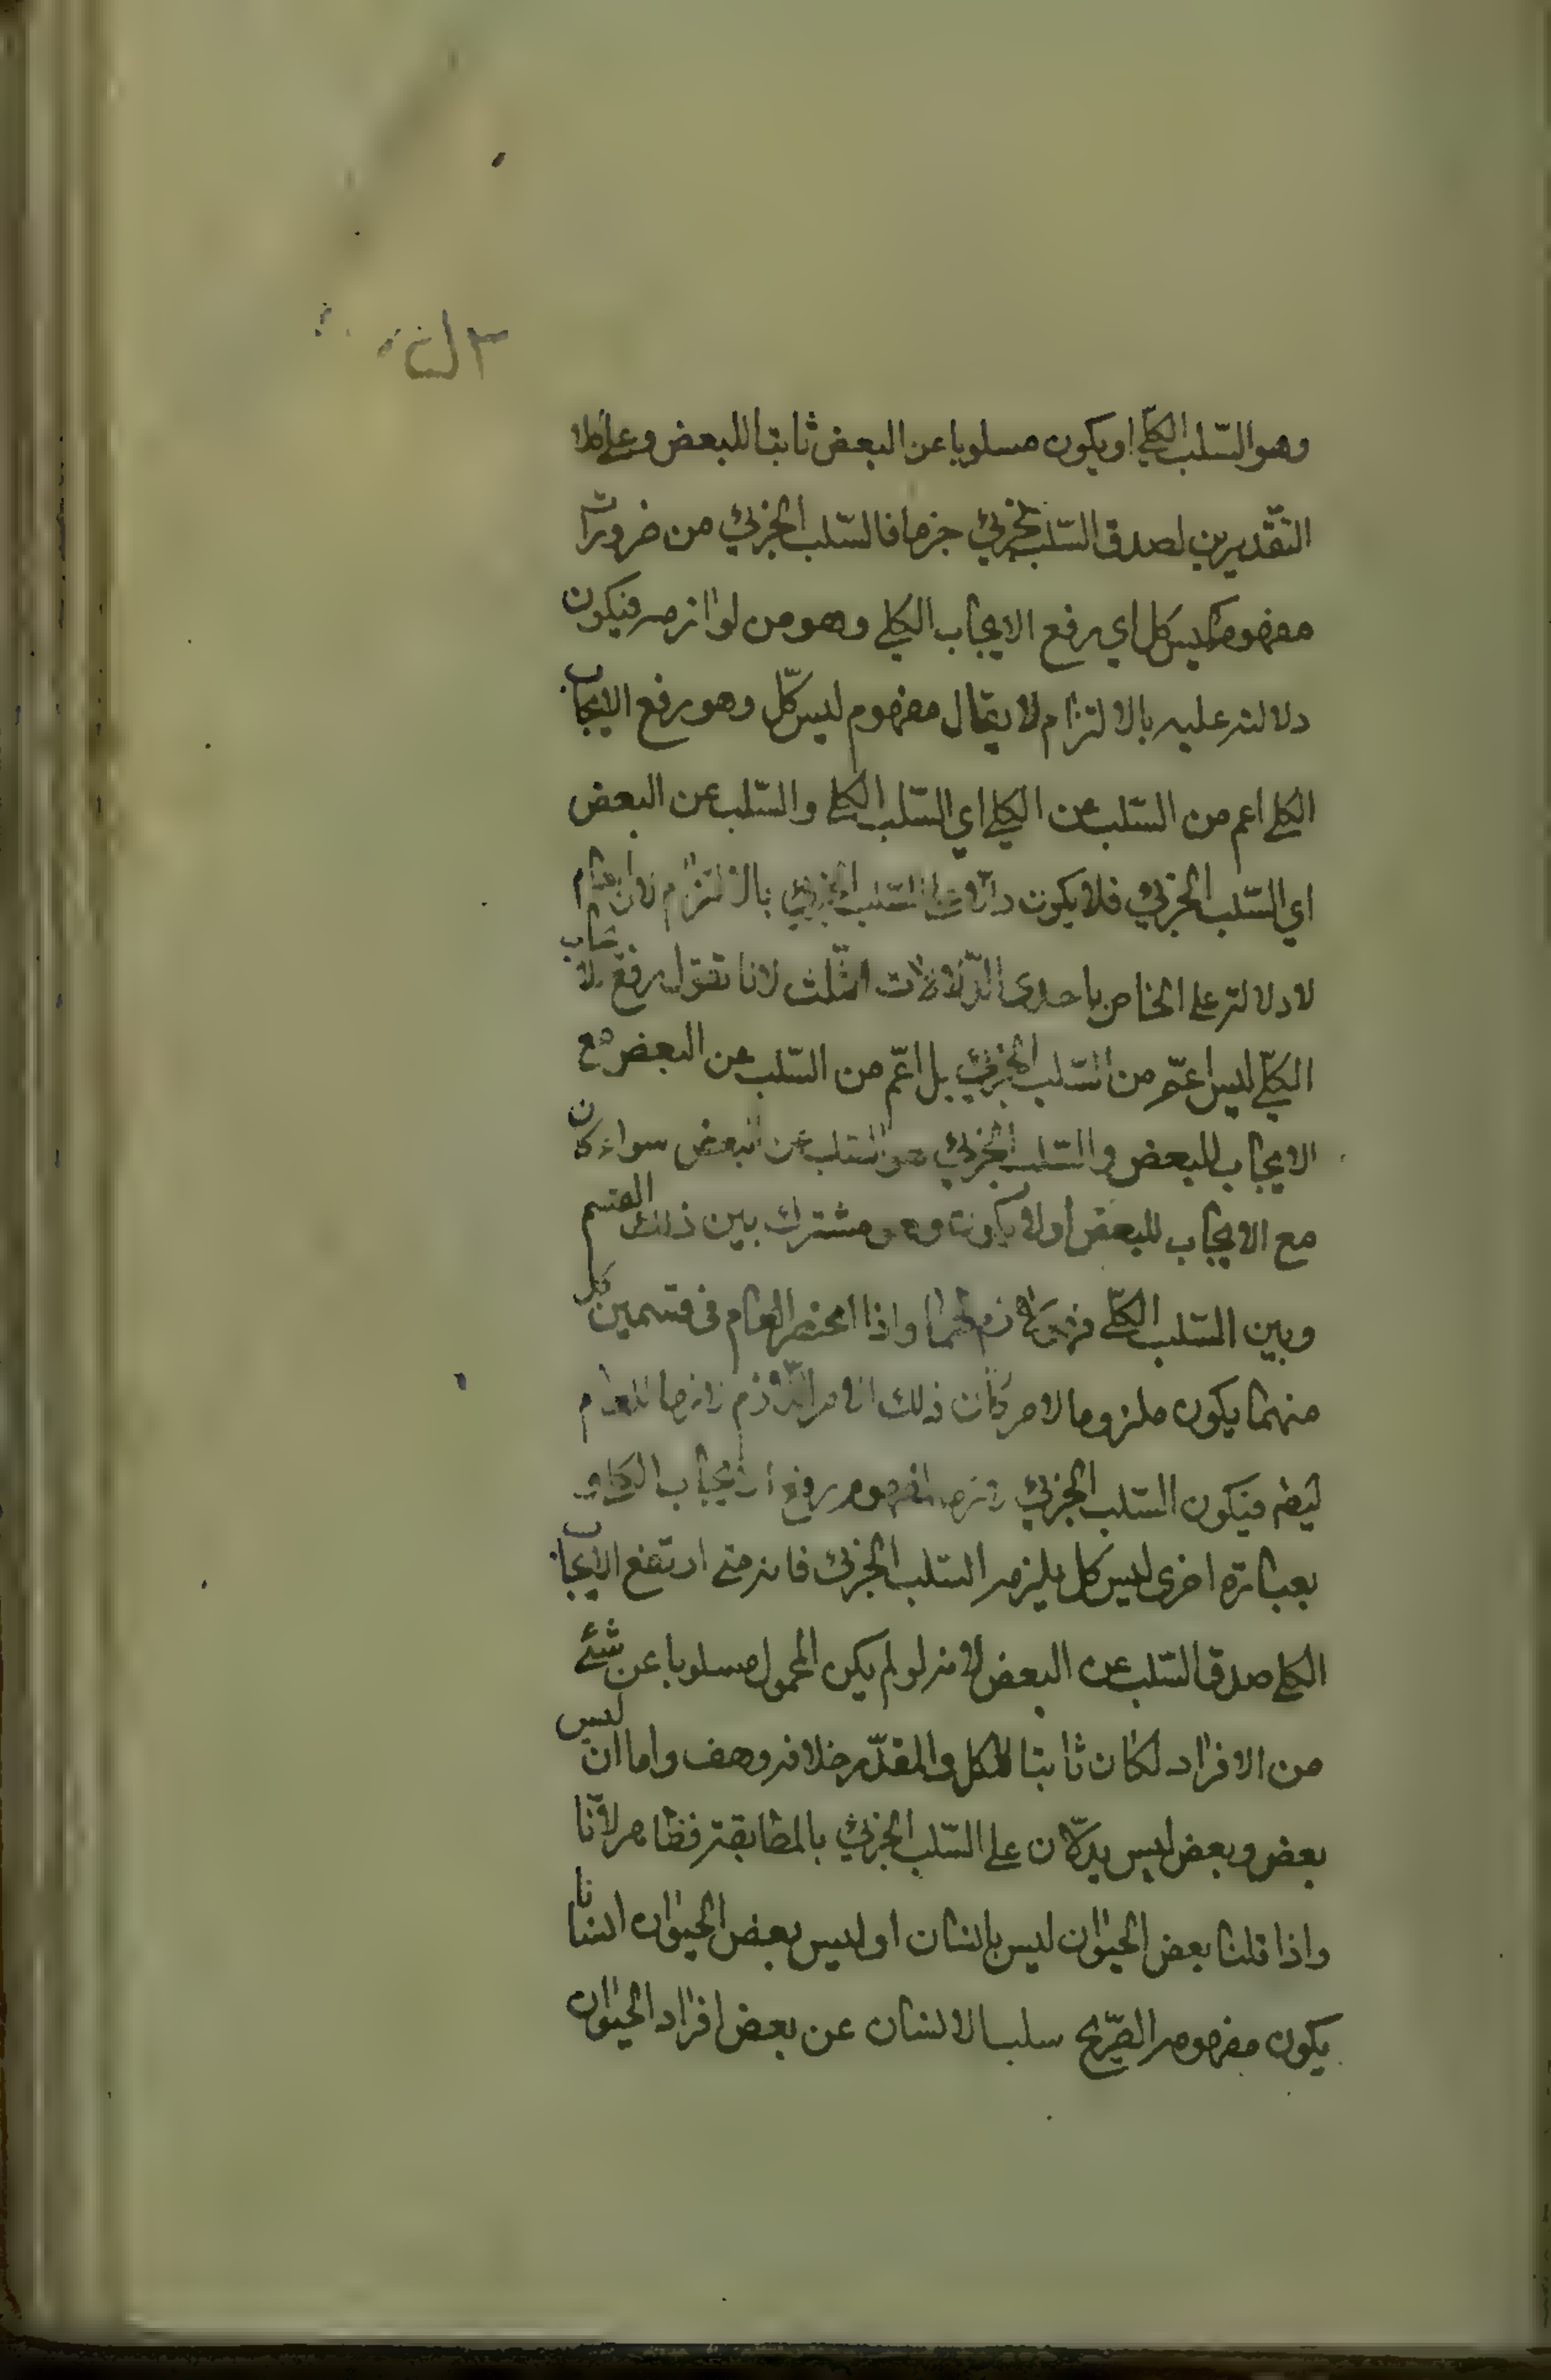 وهو السّلب الكلّي او يكون مسلوبا عن البعض ثابتا للبعض وعلى كلا
التقديرين لصدق السّلب الجزئي جزما فالسّلب الجزئي من ضروريات
مفهوم ليس كل اي رفع الايجاب الكلي وهو من لوازمه فيكون
دلالته عليه بالالتزام لا يقال مفهوم ليس كلّ وهو رفع الايجاب
الكلي اعم من السّلب عن الكلي اي السّلب الكلي والسّلب عن البعض
اي السّلب الجزئي فلا يكون دالّا على السّلب الجزئي بالالتزام لان العام
لا دلالة على الخاص باحدى الدّلالات الثّلث لانا نقول رفع الايجاب
الكلّي ليس اعمّ من السّلب الجزئي بل اعمّ من السّلب عن البعض مع
الايجاب للبعض والسّلب الجزئي هو السّلب عن البعض سواء كان
مع الايجاب للبعض او لا يكون وهو مشترك بين ذلك القسم
وبين السّلب الكلّي فهو لازم لهما واذا انحصر العام في قسمين كل
منهما يكون ملزوما لامر كان ذلك الامر اللّازم لازما للعام
ايضا فيكون السّلب الجزئي لازما لمفهوم رفع الايجاب الكلي و
بعبارة اخرى ليس كل يلزمه السّلب الجزئي فانه متى ارتفع الايجاب
الكلي صدق السّلب عن البعض لانه لو لم يكن المحمول مسلوبا عن شئ
من الافراد لكان ثابتا للكل والمقدّر خلافه وهف واما ان ليس
بعض وبعض ليس يدلّان على السّلب الجزئي بالمطابقة فظاهر لانّا
واذا قلنا بعض الحيوان ليس بانسان او ليس بعض الحيوان انسانا
يكون مفهومه الصّريح سلب الانسان عن بعض افراد الحيوان